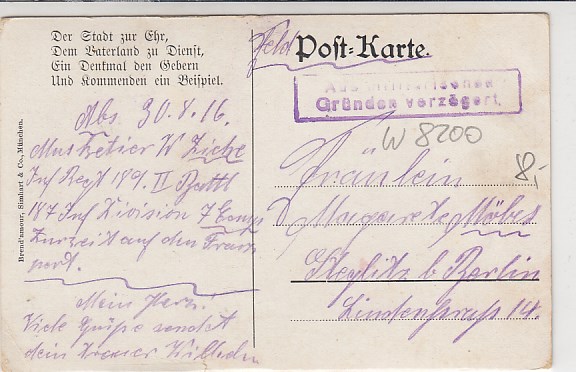 Der Stadt zur Ehr,
Dem Vaterland zu Dienst,
Ein Denkmal den Gebern
Und Kommenden ein Beispiel.
Abs. 30.8.16.
Musketier W
Inf Regt 189. II Battl
187 Inf Division 7 Comp
Zurzeit auf den Trans
port.
Mein Herz!
Viele Grüße sendet
dein treuer
Brend'amour, Simhart & Co., München.
Feld Post-Karte.
Aus militärischen
Gründen verzögert.
W 8200
8,-
Fräulein
Margarete Möbes
Steglitz b Berlin
Lindenstraße 14.